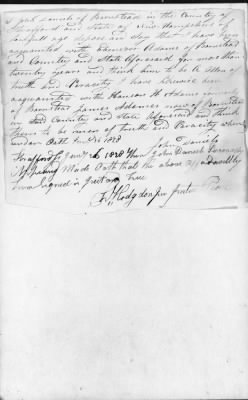 of Barnstead in the County of
Strafford and State of New Hampshire of
lawful age depose and say that I have been
acquainted with Ebenezer Adams of Barnstead
and County and State aforesaid for more than
twenty years and think him to be a Man of
truth and Veracity I have likewise been
acquainted with H Adams
of Barnstead James Adams now of Barnstead
in said County and State aforesaid and think
them to be men of truth and Veracity
under Oath 1828
John Daniels
Strafford Jany 26 1828 then John Daniels Personally
Appeared Made Oath that the above affidavit by
him signed is Just and true
Hodgdon Jun